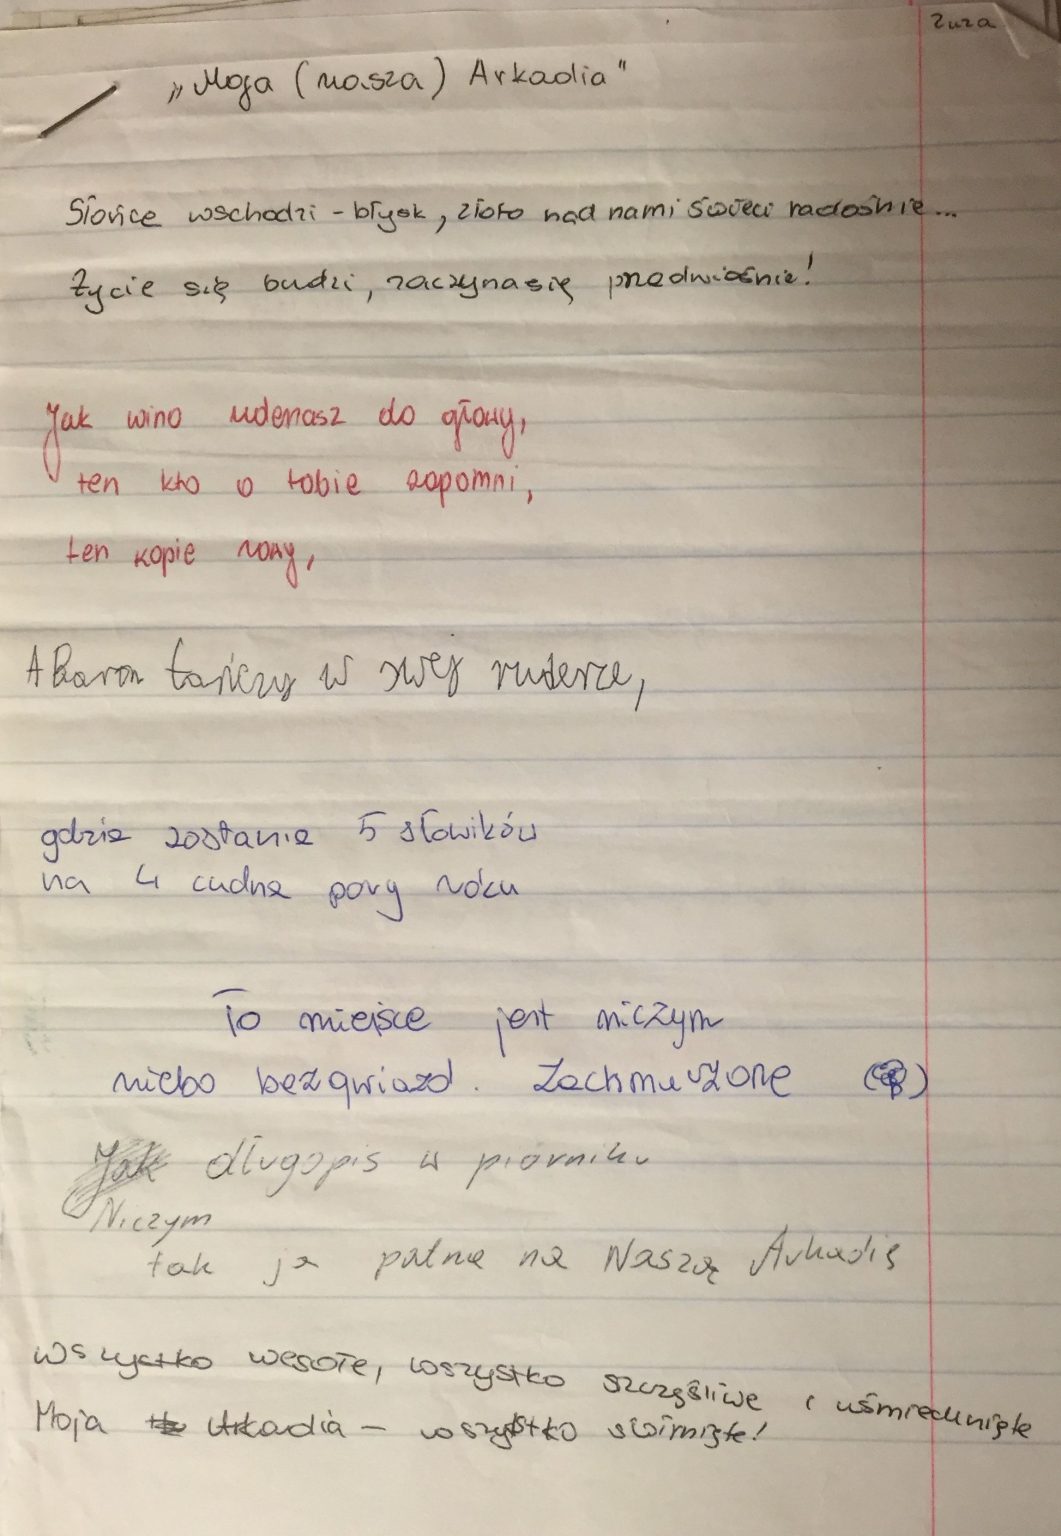 Zuza
„Moja (nasza) Arkadia"
Słońce wschodzi - błysk, złoto nad nami świeci radośnie...
Życie się budzi, zaczyna się przedwiośnie!
Jak wino uderzasz do głowy,
ten kto o tobie zapomni,
ten kopie rowy,
A Baron tańczy w swej ruderze,
gdzie zostanie 5 słowików
na 4 cudne pory roku
To miejsce jest niczym
niebo bez gwiazd. Zachmurzone
długopis w piórniku
Niczym
tak ja patrzę na Naszą Arkadię
wszystko wesołe, wszystko szczęśliwe i uśmiechnięte
Moja Arkadia - wszystko świrnięte!